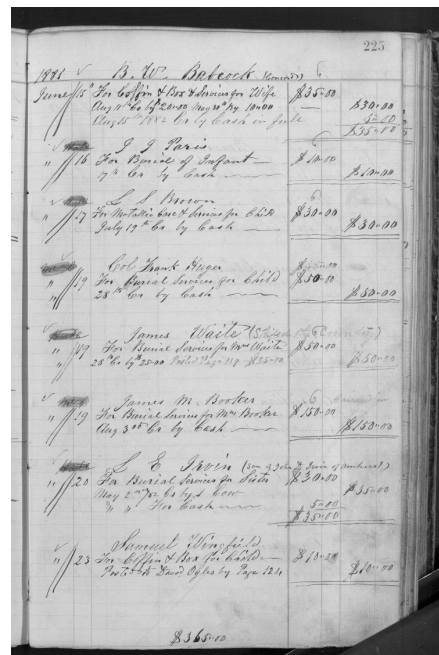 225
1881 B. W. Babcock
June 15" For Coffin & Box & Services for Wife $35-00
Aug 11th Cr by 20-00 10-00 $30-00
Aug 15th 1882 Cr by Cash in full 5-00
$35-00
J J Paris
" 16 For Burial of Infant $10-00
17th Cr by Cash $10-00
L S Brown
" 17 For Metallic Case & Services for Child $30-00
July 19th Cr by Cash $30-00
Col Frank Huger
" 19 For Burial Services for Child $50-00
28th Cr by Cash $50-00
James Waite
" 19 For Burial Services for Mrs Waite $50-00
28th Cr by 25-00 Posted Page 119 $25-00 $50-00
James M. Booker
" 19 For Burial Services for Mrs Booker $150-00
Aug 3rd Cr by Cash $150-00
L E Irvin (Son of John Irvin of Amherst)
" 20 For Burial Services for Sister $30-00
May 2nd /82 Cr by 1 Cow $35-00
" " For Cash 5-00
$35-00
Samuel Wingfield
" 23 For Coffin & Box for Child $10-00
Posted to David Ogles by Page 124 $10-00
$365-00